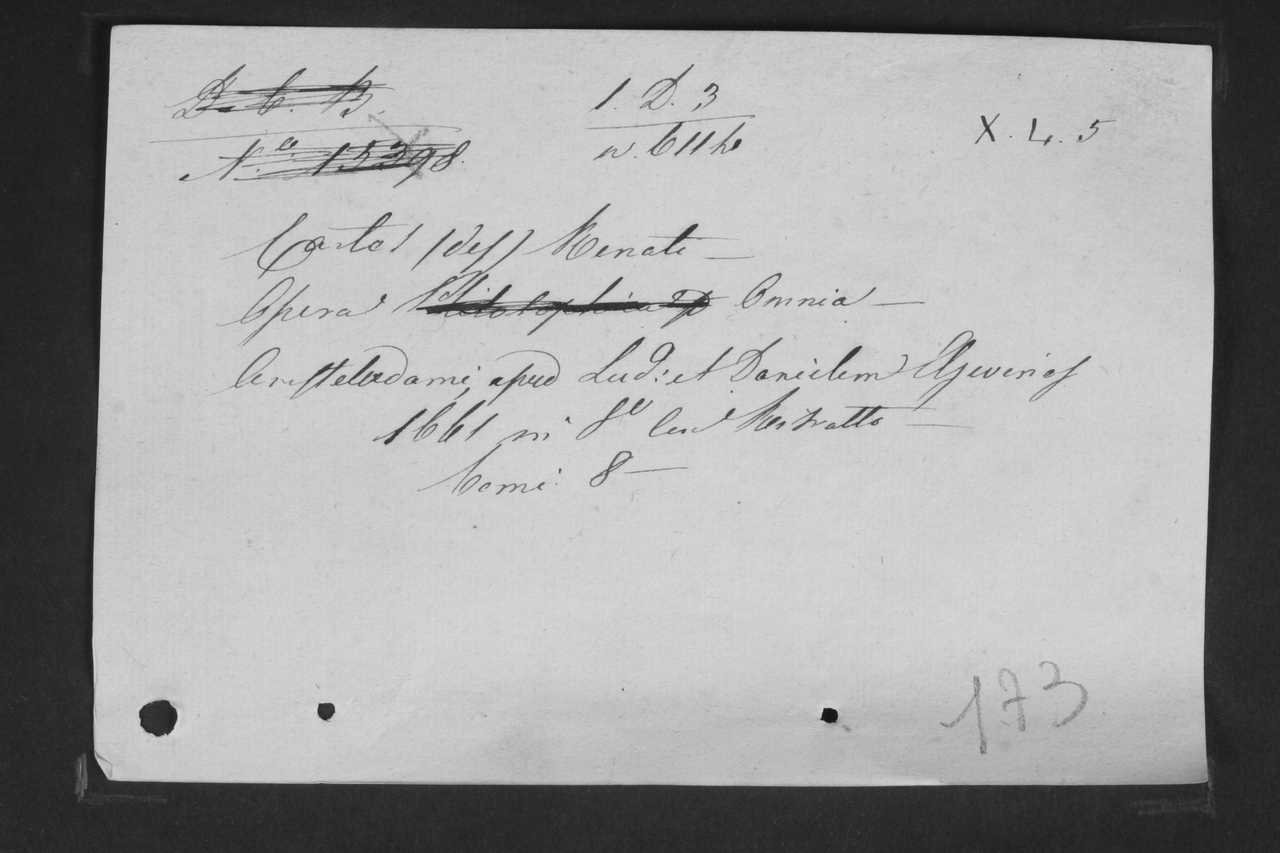 D. C. B. 1. D. 3 X. 4. 5
N.o 15398.
Cartes (des) Renati —
Opera Philosophica Omnia —
Amstelodami, apud Lud: et Danielem Elzevirios
1661 in 8° Con Ritratto —
Tomi: 8 —
173